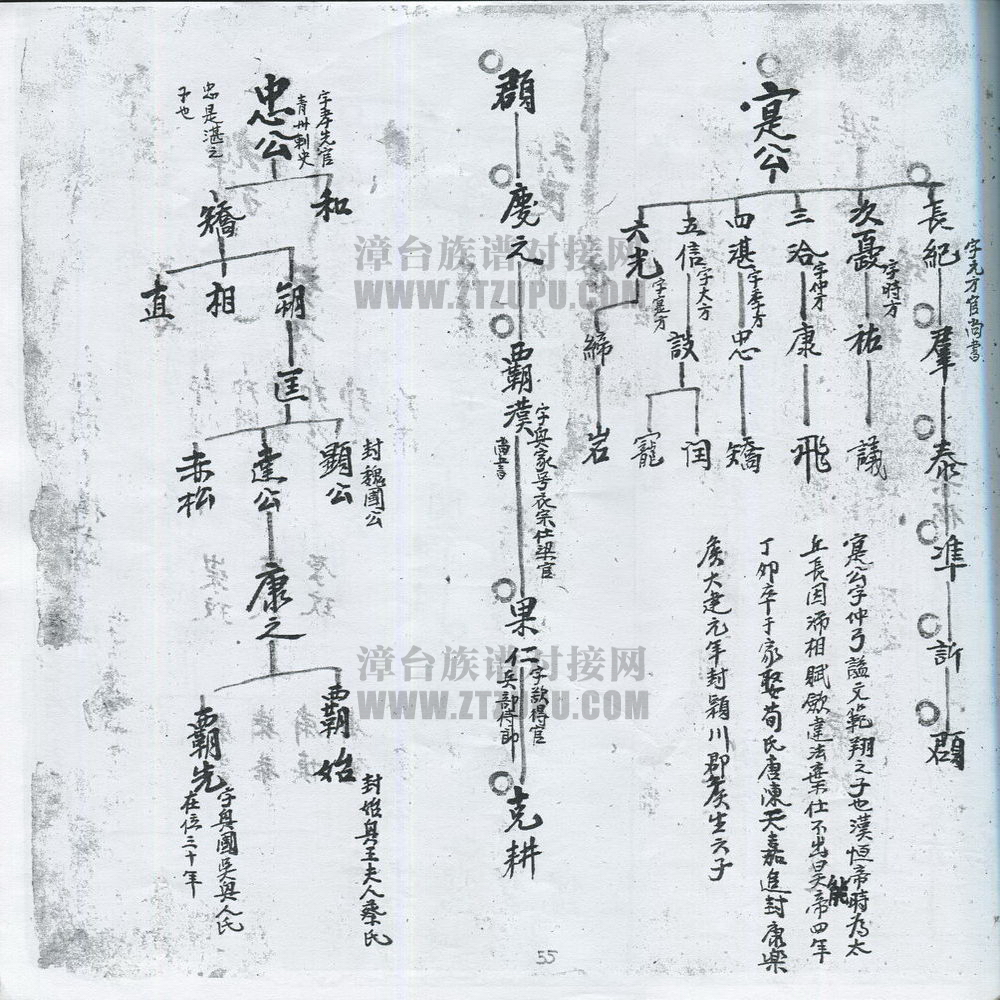 寔公
長紀
字元方官尚書
羣
泰
准
訢
群
次
字時方
祐
議
三洽
字仲方
康
飛
四湛
字季方
忠
矯
五信
字大方
設
閏
寵
六光
字寔方
締
岩
寔公字仲弓謚文範翔之子也漢恒帝時為太
丘長因沛相賦歛違法棄仕不出昊帝四年
丁卯卒于家娶荀氏唐陳天嘉追封康樂
矦大建元年封潁川郡矦生六子
群
慶之
霸漢
字興家号衣宗仕梁官
尚書
果仁
字欽得官
兵部得郎
克耕
忠公
字孝先官
青州刺史
忠是湛之
子也
和
矯
朔
相
直
匡
顯公
封魏國公
達公
赤松
康之
霸始
封始興王夫人蔡氏
霸先
字興國吳興人氏
在位三十年
漳台族谱对接网
WWW.ZTZUPU.COM
漳台族谱对接网
WWW.ZTZUPU.COM
55